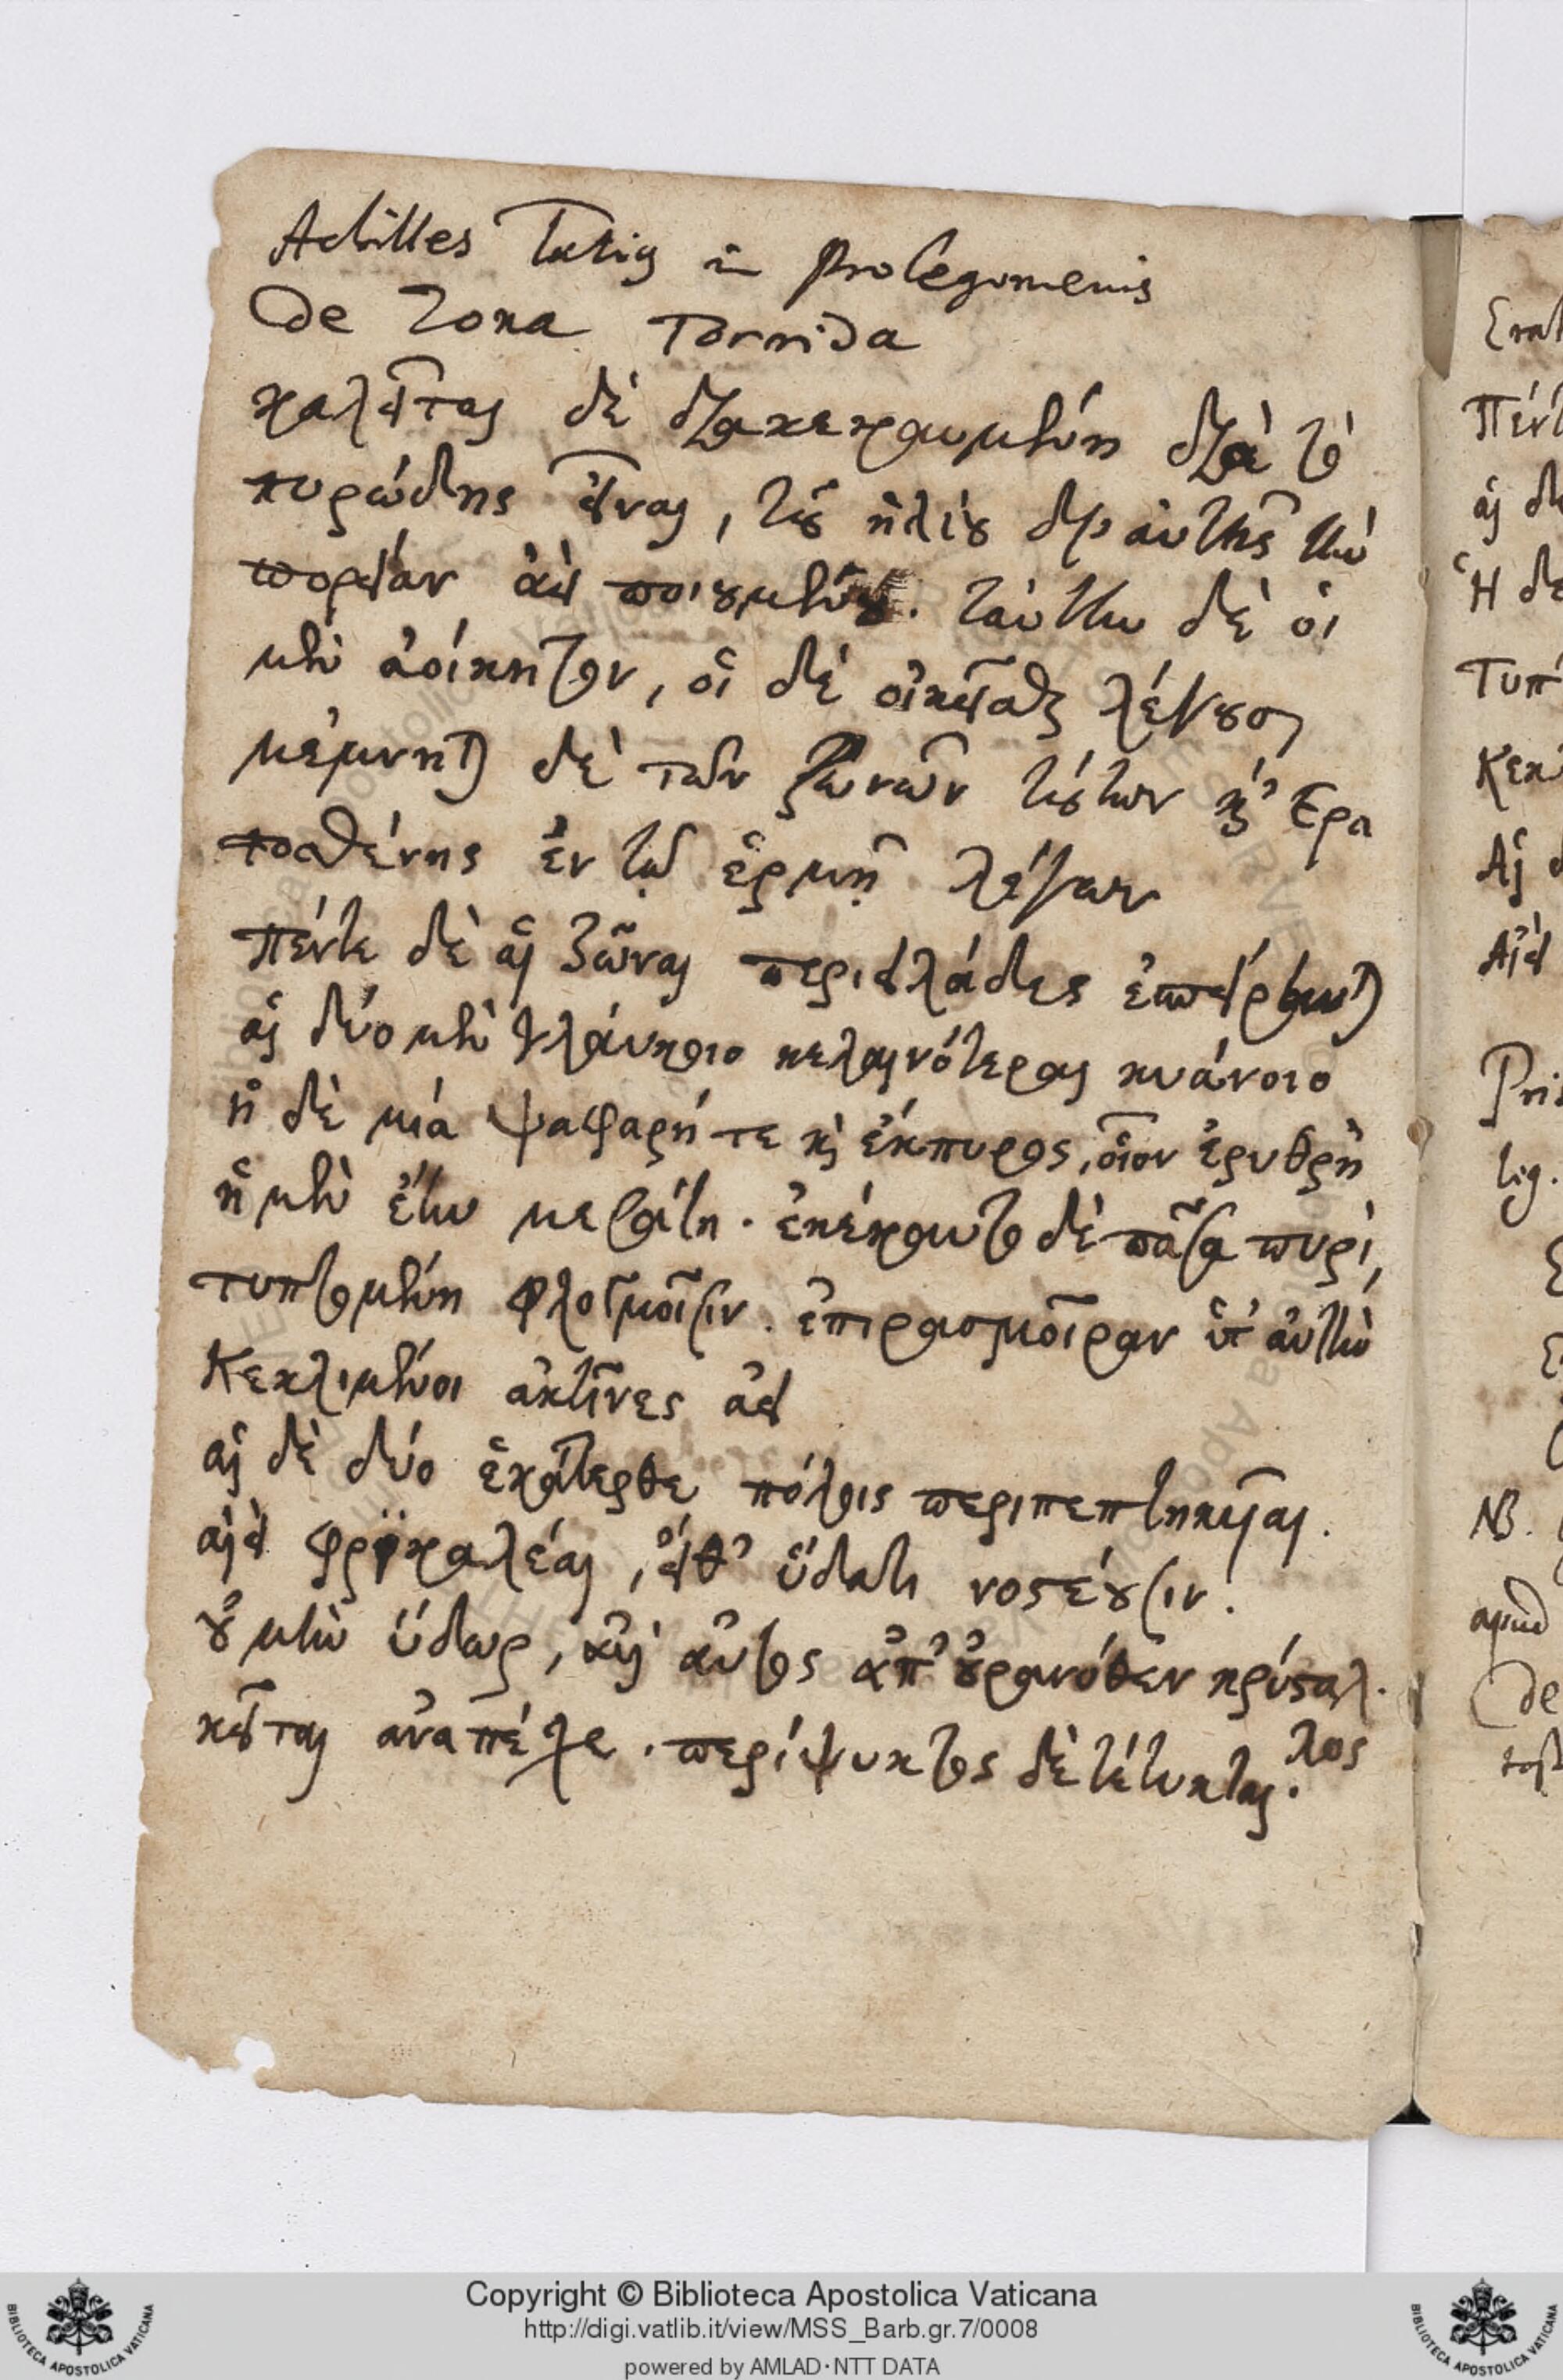 Achilles Tatiꝰ in Prolegomenis
De Zona Torrida
καλεῖται δὲ διακεκαυμένη διὰ τὸ
πυρώδης εἶναι, τοῦ ἡλίου δι' αὐτῆς τὴν
πορείαν ἀεὶ ποιουμένου. ταύτην δὲ οἱ
μὲν ἀοίκητον, οἱ δὲ οἰκεῖσθαι λέγουσι
μέμνηται δὲ τῶν ζωνῶν τούτων καὶ Ερα
τοσθένης ἐν τῷ ἑρμῇ λέγων
πέντε δὲ αἱ ζῶναι περιειλάδες ἐσπείρηνται
αἱ δύο μὲν γλαύκοιο κελαινότεραι κυάνοιο
ἡ δὲ μία ψαφαρή τε καὶ ἔκπυρος, οἷον ἐρυθρὴ
ἡ μὲν ἔην μεσάτη. ἐκέκαυτο δὲ πᾶσα πυρὶ,
τυπτομένη φλογμοῖσιν. ἐπιρασμοῖραν ὑπ' αὐτὴν
Κεκλιμένοι ἀκτῖνες ἀεὶ
αἱ δὲ δύο ἑκάτερθε πόλοις περιπεπτηκυῖαι.
αἰεὶ φρικαλέαι, αἰεὶ θ' ὕδατι νοτέουσιν.
οὐ μὲν ὕδωρ, ἀλλ' αὐτος ἀπ' οὐρανόθεν κρύσταλ-
λος
κεῖται ἀναπέσχε. περίψυκτος δὲ τέτυκται.
Copyright © Biblioteca Apostolica Vaticana
http://digi.vatlib.it/view/MSS_Barb.gr.7/0008
powered by AMLAD·NTT DATA
BIBLIOTECA APOSTOLICA VATICANA
BIBLIOTECA APOSTOLICA VATICANA